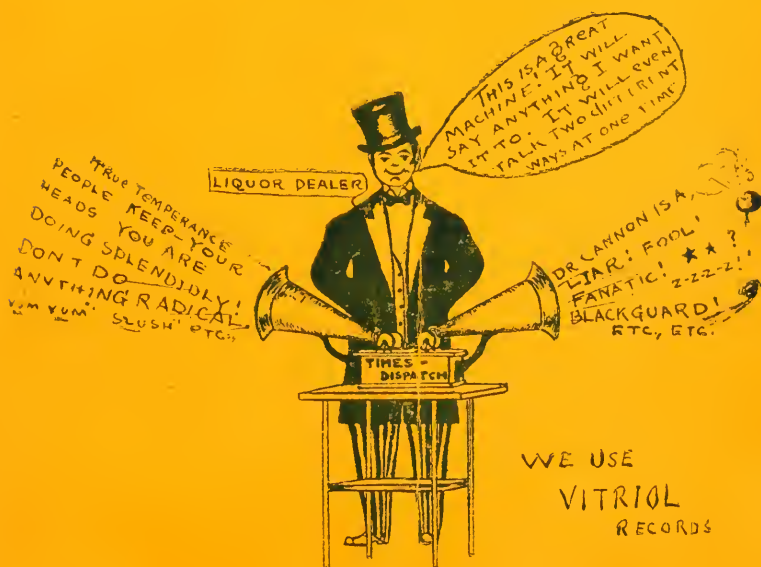 THIS IS A GREAT
MACHINE! IT WILL
SAY ANYTHING I WANT
IT TO. IT WILL EVEN
TALK TWO DIFFIRINT
WAYS AT ONE TIME
LIQUOR DEALER
TRUE TEMPERANCE
PEOPLE KEEP YOUR
HEADS YOU ARE
DOING SPLENDIDLY!
DON'T DO
ANYTHING RADICAL
YUM YUM! SLUSH! ETC,
DR CANNON IS A,
LIAR! FOOL!
FANATIC! ★★?
Z-Z-Z-Z!!
BLACKGUARD!
ETC, ETC.
TIMES-
DISPATCH
WE USE
VITRIOL
RECORDS